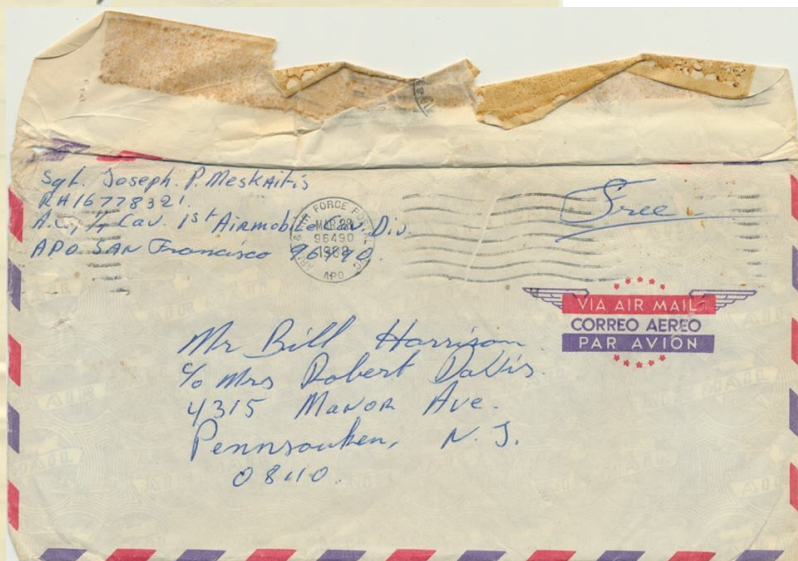 Sgt. Joseph. P. Meskaitis
RA16778321.
A.Co, 1/7 Cav. 1st Airmobile Cav. Div.
APO SAN Francisco 96490.
AIR FORCE POSTAL
MAR 28
96490
APO
Free
VIA AIR MAIL
CORREO AEREO
PAR AVION
Mr Bill Harrison
c/o Mrs Robert DaVis.
4315 Manor Ave.
Pennsauken, N. J.
08110.